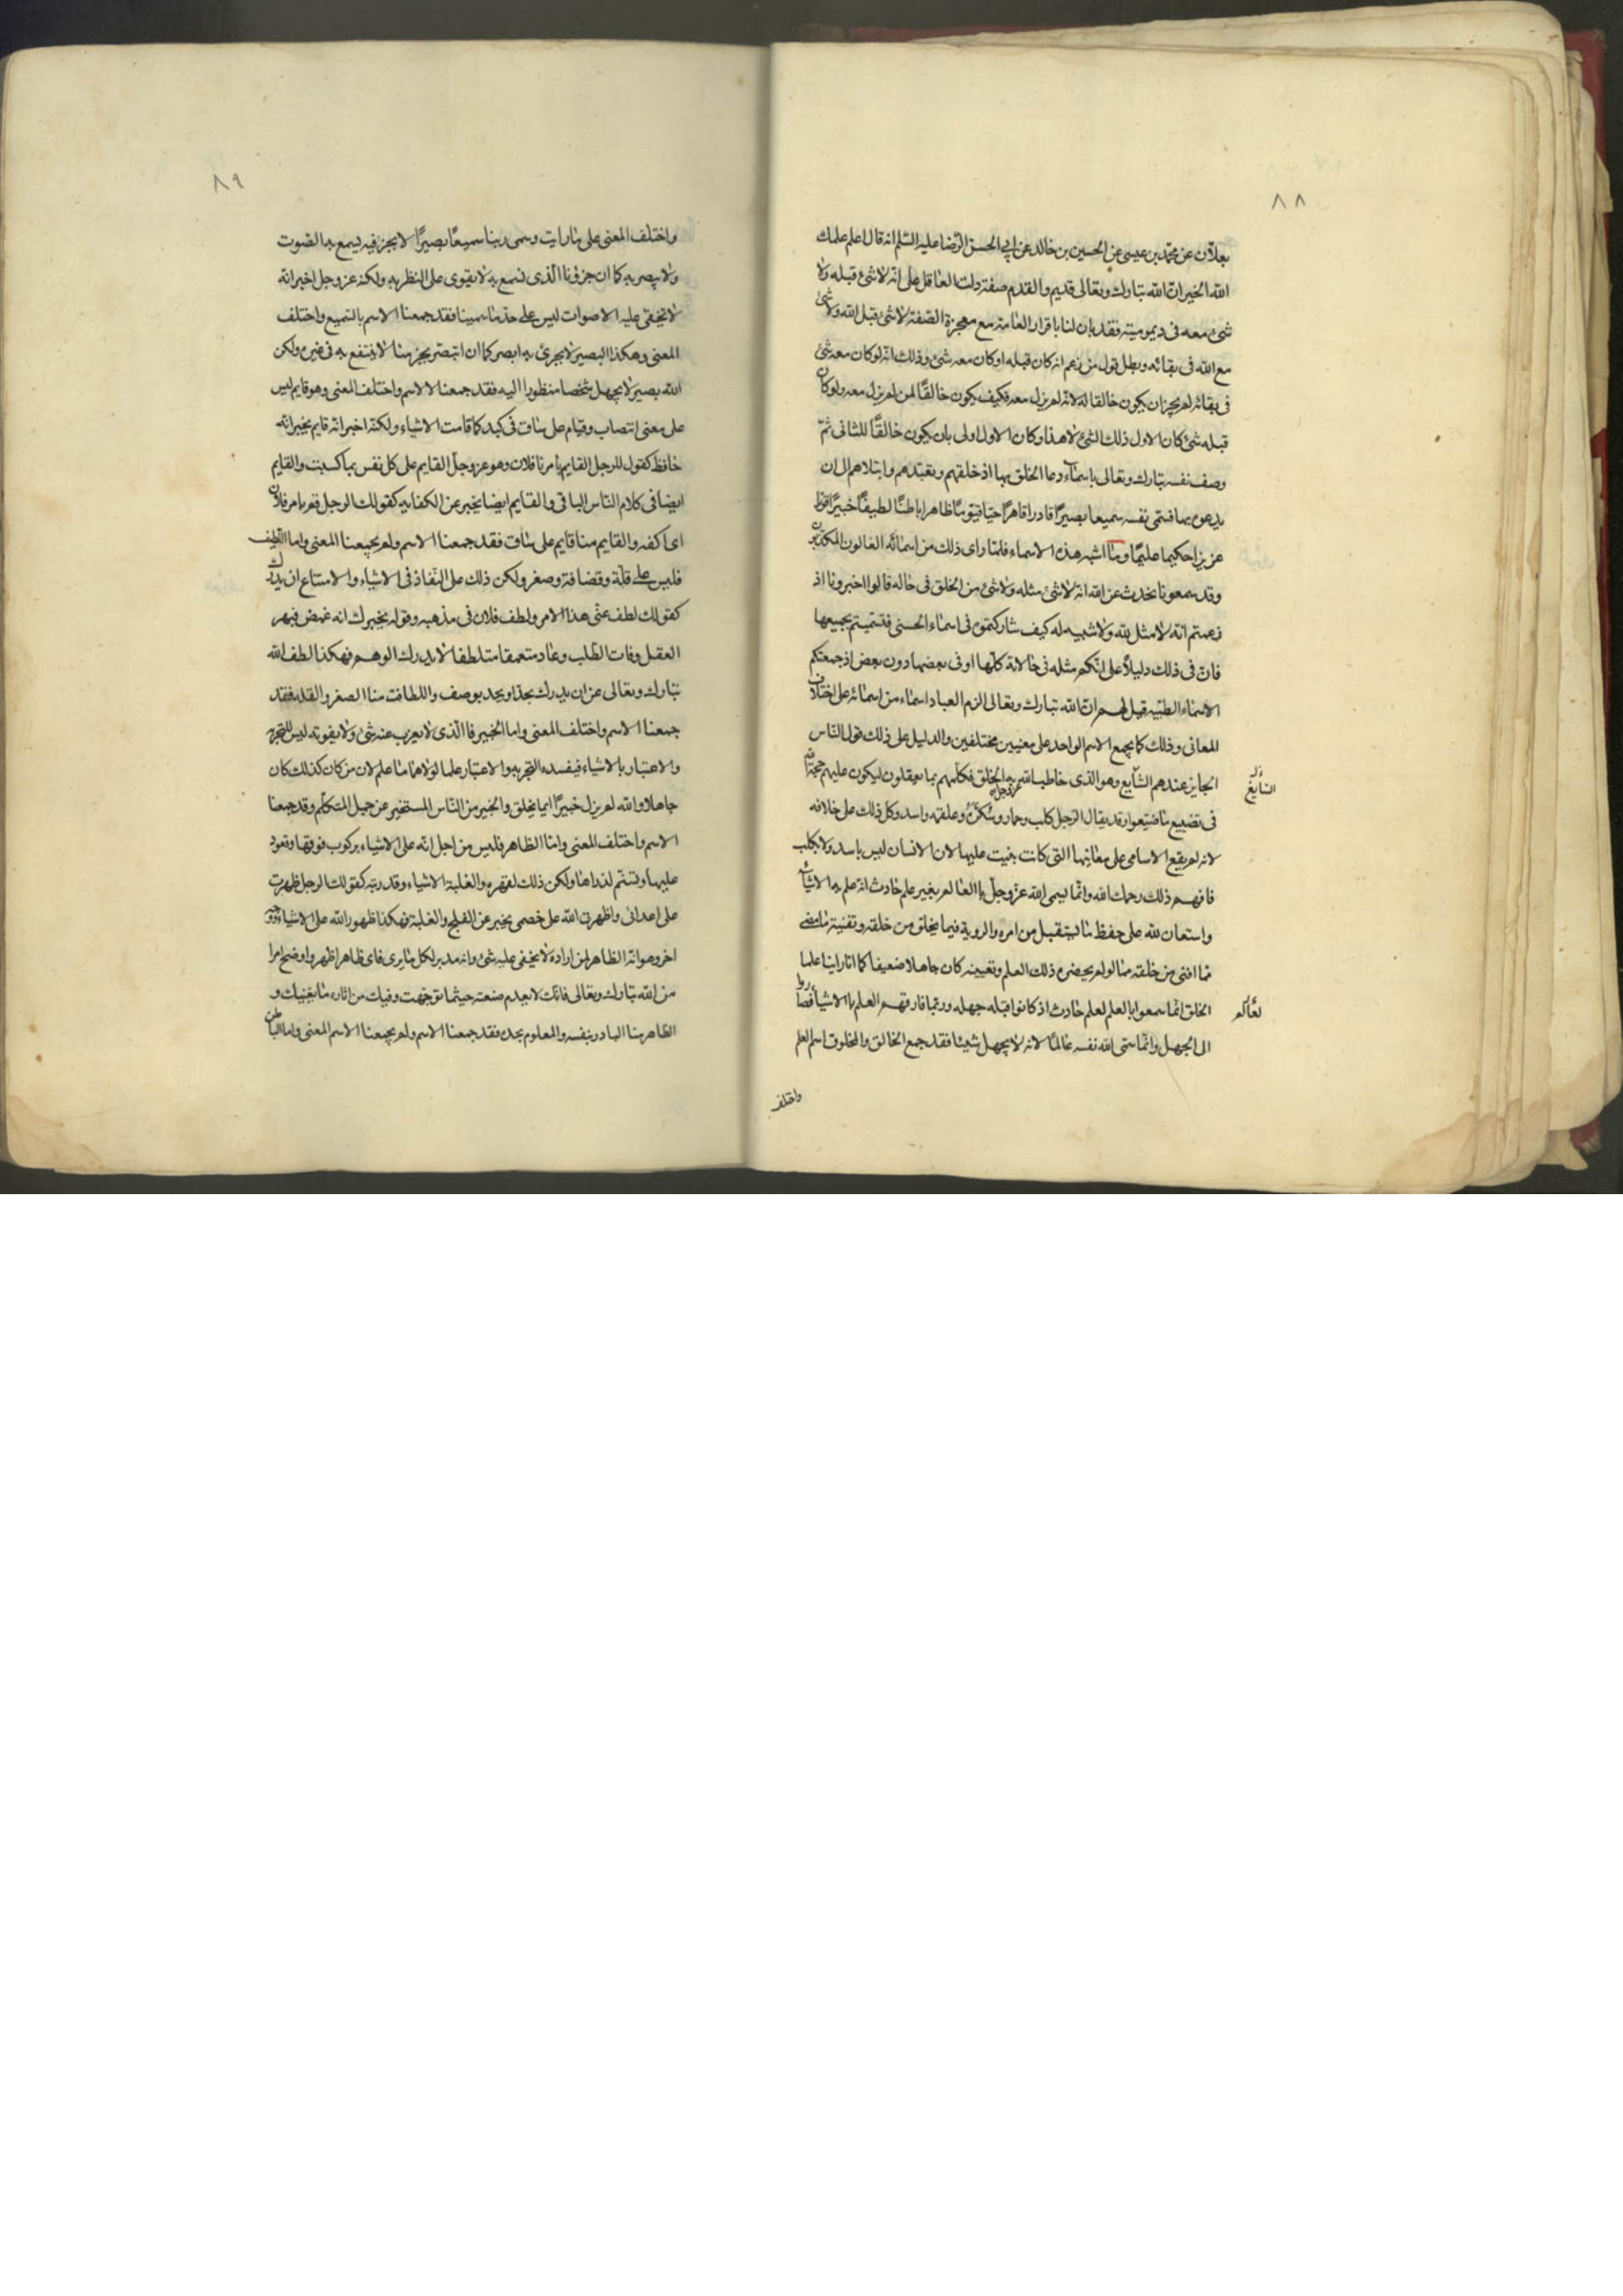 ٨٨
بعلان عن محمد بن عيسى عن الحسين بن خالد عن ابي الحسن الرضا عليه السلم انه قال اعلم علمك
الله الخير ان الله تبارك وتعالى قديم والقدم صفة دلت العاقل على انه لا شئ قبله ولا
شئ معه في ديموميته فقد بان لنا باقرار العامة مع معجزة الصفة لا شئ قبل الله ولا شئ
مع الله في بقائه وبطل قول من زعم انه كان قبله او كان معه شئ وذلك انه لو كان معه شئ
في بقائه لم يجز ان يكون خالقا له لانه لم يزل معه فكيف يكون خالقا لمن لم يزل معه ولو كان
قبله شئ كان الاول ذلك الشئ لا هذا وكان الاول اولى بان يكون خالقا للثاني ثم
وصف نفسه تبارك وتعالى باسماء دعا الخلق بها اذ خلقهم وتعبدهم وابتلاهم الى ان
يدعوه بها فسمى نفسه سميعا بصيرا قادرا قاهرا حيا قيوما ظاهرا باطنا لطيفا خبيرا قويا
عزيزا حكيما عليما وما اشبه هذه الاسماء فلما راى ذلك من اسمائه الغالون المكذبون
وقد سمعونا نحدث عن الله انه لا شئ مثله ولا شئ من الخلق في حاله قالوا اخبرونا اذ
زعمتم انه لا مثل لله ولا شبيه له كيف شاركتموه في اسماء الحسنى فتسميتم بجميعها
فان في ذلك دليلا على انكم مثله في حالاته كلها او في بعضها دون بعض اذ جمعتكم
الاسماء الطيبة قيل لهم ان الله تبارك وتعالى الزم العباد اسماء من اسمائه على اختلاف
المعاني وذلك كما يجمع الاسم الواحد على معنيين مختلفين والدليل على ذلك قول الناس
الجايز عندهم الشايع وهو الذي خاطب الله عز وجل به الخلق فكلمهم بما يعقلون ليكون عليهم حجة
السايغ
في تضييع ما ضيعوا وقد يقال للرجل كلب وحمار وسكر وعلقمة واسد وكل ذلك على خلافه
لانه لم يقع الاسامي على معانيها التي كانت بنيت عليها لان الانسان ليس باسد ولا كلب
فافهم ذلك رحمك الله وانما يسمى الله عز وجل بالعالم بغير علم حادث انه علم به الاشياء
واستعان لله على حفظ ما يستقبل من امره والروية فيما يخلق من خلقه وتفنية ما مضى
مما افنى من خلقه ما لو لم يحضره ذلك العلم وتعيينه كان جاهلا ضعيفا كما انا راينا علما
الخلق انما سمعوا بالعلم لعلم حادث اذ كانوا قبله جهله وربما فارقهم العلم بالاشياء فصاروا
الى الجهل وانما سمى الله نفسه عالما لانه لا يجهل شيئا فقد جمع الخالق والمخلوق اسم العلم
واختلف
٨٩
واختلف المعنى على ما رايت وسمى ربنا سميعا بصيرا لا بجزء فيه يسمع به الصوت
ولا يبصر به كما ان جزونا الذي نسمع به لا يقوى على النظر به ولكنه عز وجل اخبر انه
لا تخفى عليه الاصوات ليس على حد ما سمينا فقد جمعنا الاسم بالسميع واختلف
المعنى وهكذا البصير لا بجزء به ابصر كما ان انبصر بجزء منا لا ينتفع به في غيره ولكن
الله بصير لا يجهل شخصا منظورا اليه فقد جمعنا الاسم واختلف المعنى وهو قايم ليس
على معنى انتصاب وقيام على ساق في كبد كما قامت الاشياء ولكنه اخبر انه قايم يخبر انه
حافظ كقول للرجل القايم بامرنا فلان وهو عز وجل القايم على كل نفس بما كسبت والقايم
ايضا في كلام الناس الباقي والقايم ايضا يخبر عن الكفاية كقولك لرجل قم بامر فلان
اي اكفه والقايم منا قايم على ساق فقد جمعنا الاسم ولم يجمعنا المعنى واما اللطيف
فليس على قلة وقضافة وصغر ولكن ذلك على النفاذ في الاشياء والامتناع ان يدرك
كقولك لطف عني هذا الامر ولطف فلان في مذهبه وقوله يخبرك انه غمض فبهر
العقل وفات الطلب وعاد متعمقا متلطفا لا يدرك الوهم فهكذا لطف الله
تبارك وتعالى عن ان يدرك بحد او يحد بوصف واللطافة منا الصغر والقلة فقد
جمعنا الاسم واختلف المعنى واما الخبير فالذي لا يعزب عنه شئ ولا يفوته ليس للتجربة
والاعتبار بالاشياء فيفسده التجربة والاعتبار علما لولاهما ما علم لان من كان كذلك كان
جاهلا والله لم يزل خبيرا بما يخلق والخبير من الناس المستخبر عن جهل المتكلم وقد جمعنا
الاسم واختلف المعنى واما الظاهر فليس من اجل انه على الاشياء بركوب فوقها وقعود
عليها وتسنم لذراها ولكن ذلك لقهره والغلبة الاشياء وقدرته كقول الرجل ظهرت
على اعدائي واظهرني الله على خصمي يخبر عن الفلج والغلبة فهكذا ظهور الله على الاشياء ووجه
اخر وهو انه الظاهر لمن اراده لا يخفى عليه شئ وانه مدبر لكل ما يرى فاي ظاهر اظهر واوضح امرا
من الله تبارك وتعالى فانك لا تعدم صنعته حيثما توجهت وفيك من اثاره ما يغنيك و
الظاهر منا البادر بنفسه والمعلوم بحده فقد جمعنا الاسم ولم يجمعنا الاسم المعنى واما الباطن